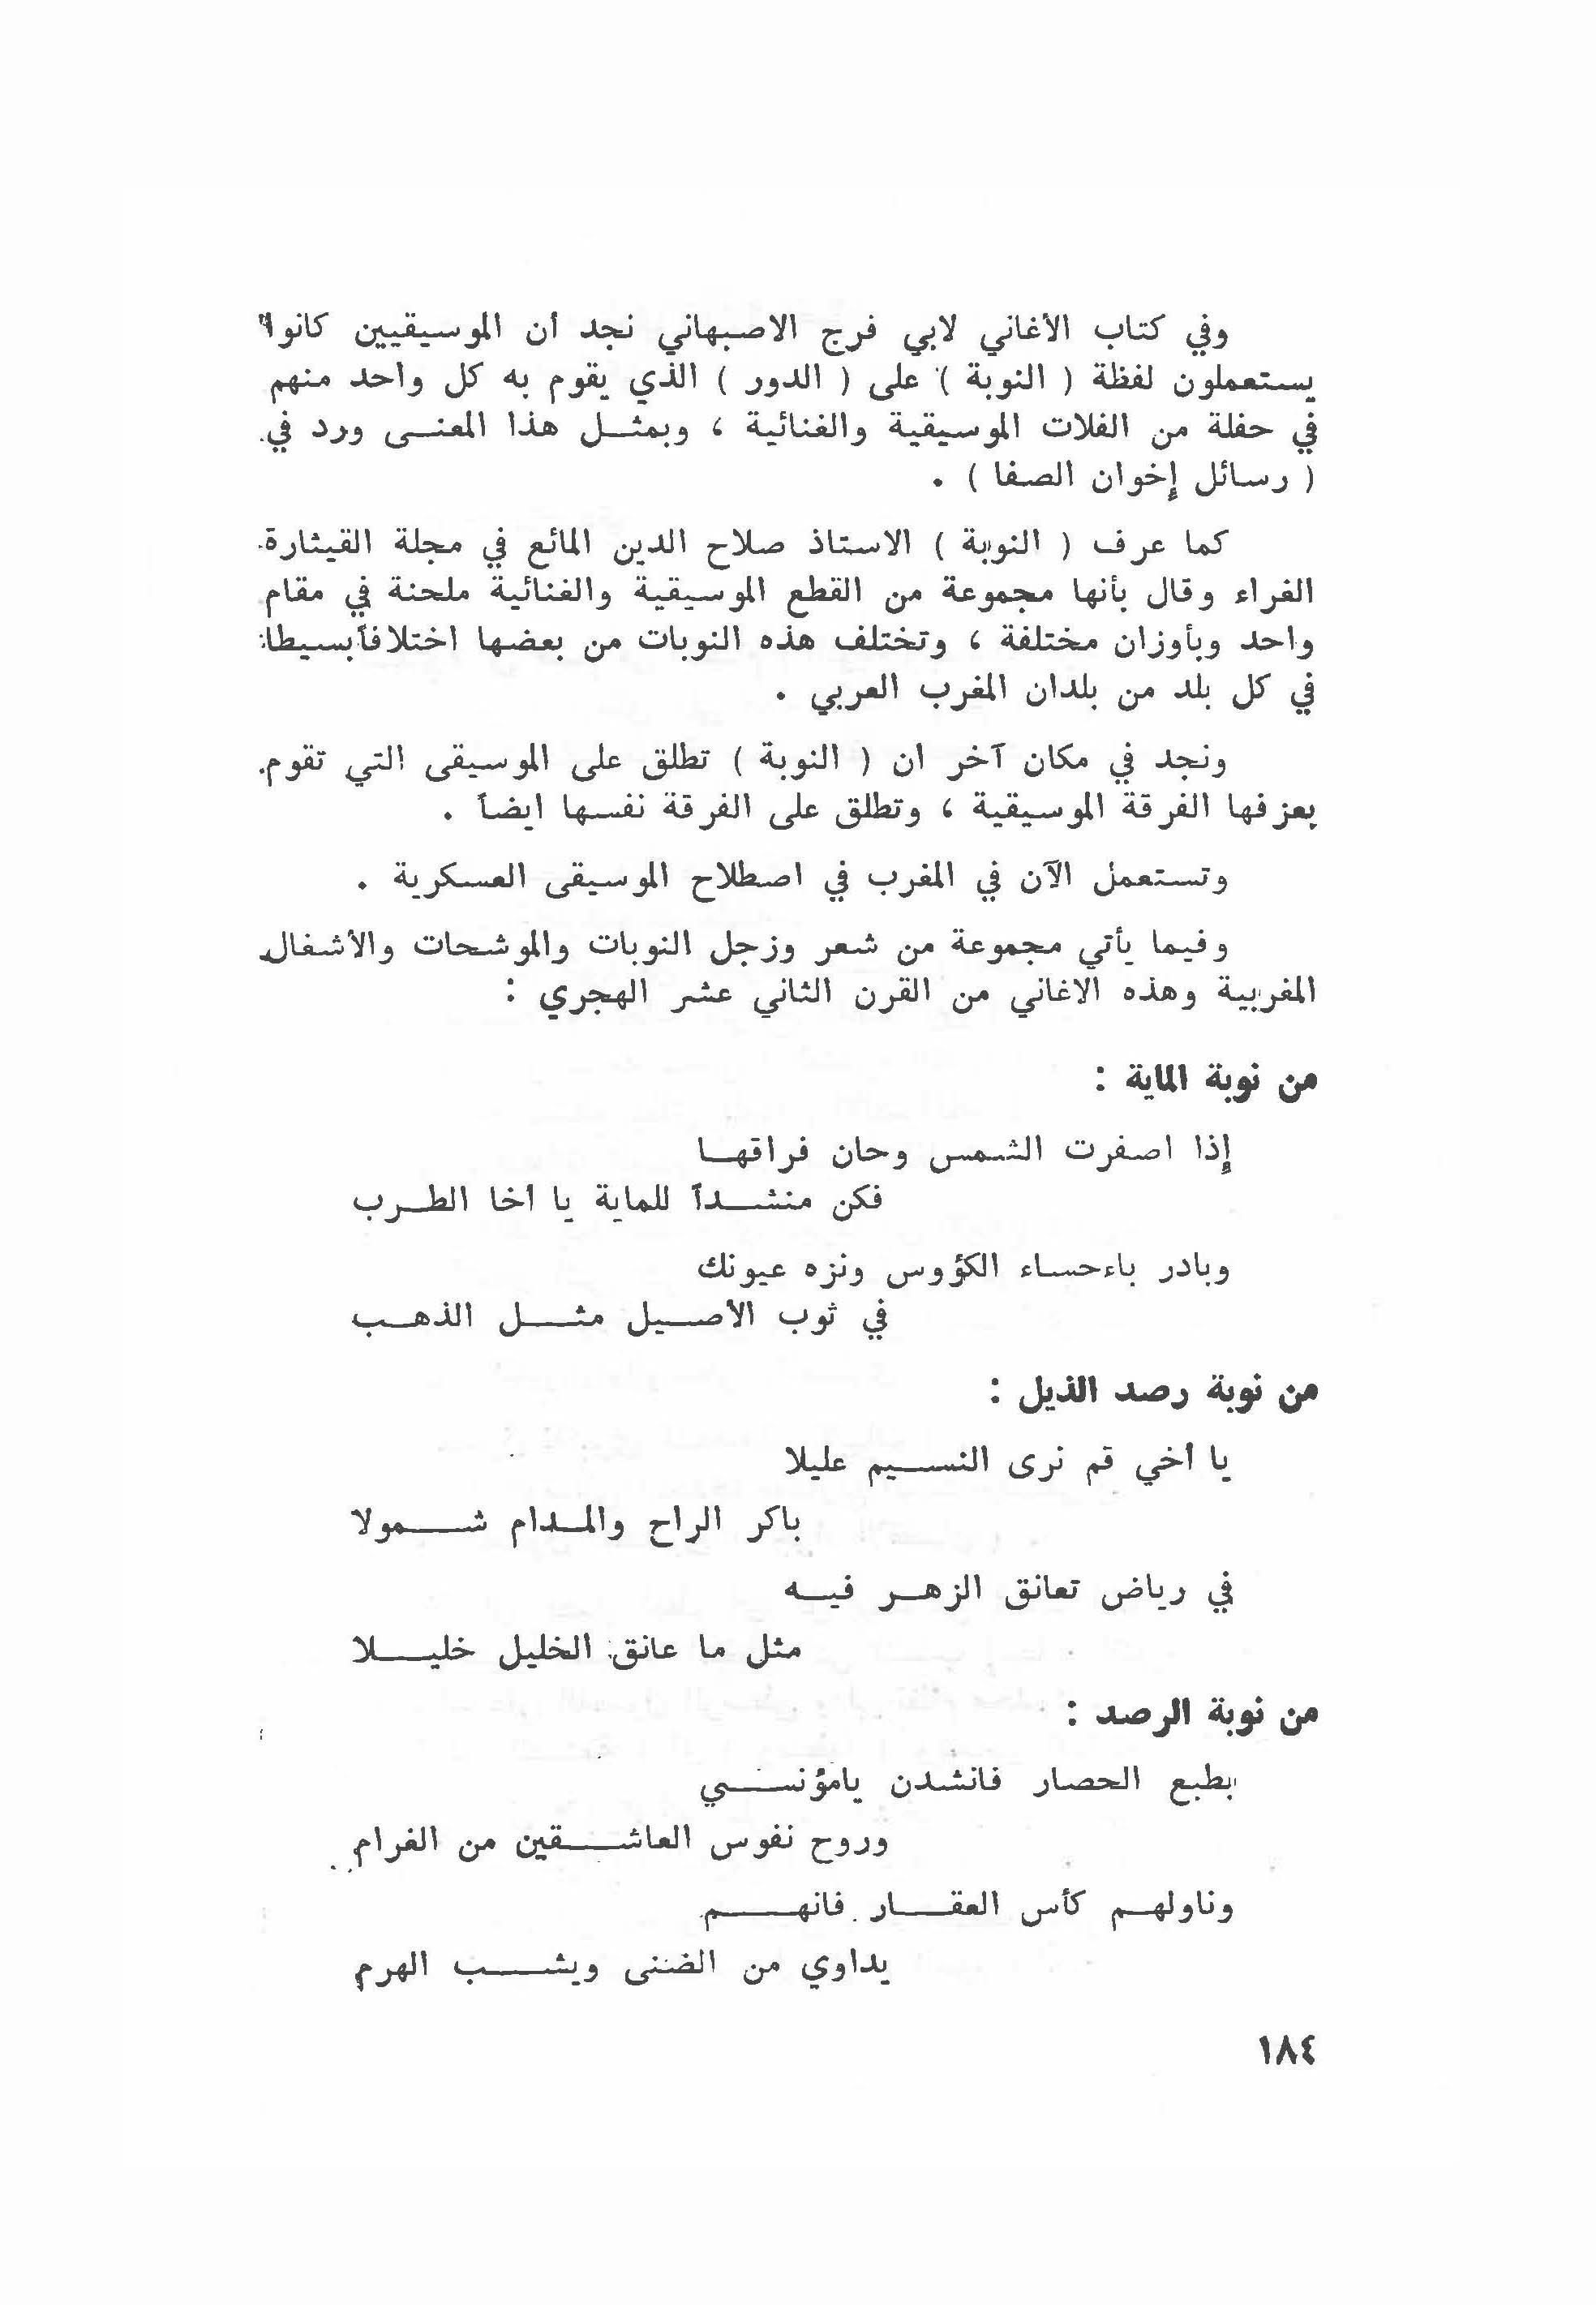 وفي كتاب الأغاني لابي فرج الاصبهاني نجد أن الموسيقيين كانوا
يستعملون لفظة ( النوبة ) على ( الدور ) الذي يقوم به كل واحد منهم
في حفلة من الفلات الموسيقية والغنائية ، وبمثل هذا المعنى ورد في
( رسائل إخوان الصفا ) .
كما عرف ( النوبة ) الاستاذ صلاح الدين المائع في مجلة القيثارة
الغراء وقال بأنها مجموعة من القطع الموسيقية والغنائية ملحنة في مقام
واحد وبأوزان مختلفة ، وتختلف هذه النوبات من بعضها اختلافاً بسيطا
في كل بلد من بلدان المغرب العربي .
ونجد في مكان آخر ان ( النوبة ) تطلق على الموسيقى التي تقوم
بعزفها الفرقة الموسيقية ، وتطلق على الفرقة نفسها ايضاً .
وتستعمل الآن في المغرب في اصطلاح الموسيقى العسكرية .
وفيما يأتي مجموعة من شعر وزجل النوبات والموشحات والأشغال
المغربية وهذه الاغاني من القرن الثاني عشر الهجري :
من نوبة الماية :
إذا اصفرت الشمس وحان فراقها
فكن منشداً للماية يا أخا الطرب
وبادر باءحساء الكؤوس ونزه عيونك
في ثوب الأصيل مثل الذهب
من نوبة رصد الذيل :
يا أخي قم نرى النسيم عليلا
باكر الراح والمدام شمولا
في رياض تعانق الزهر فيه
مثل ما عانق الخليل خليلا
من نوبة الرصد :
بطبع الحصار فانشدن يامؤنسي
وروح نفوس العاشقين من الغرام
وناولهم كأس العقار فانهم
يداوي من الضنى ويشب الهرم
١٨٤